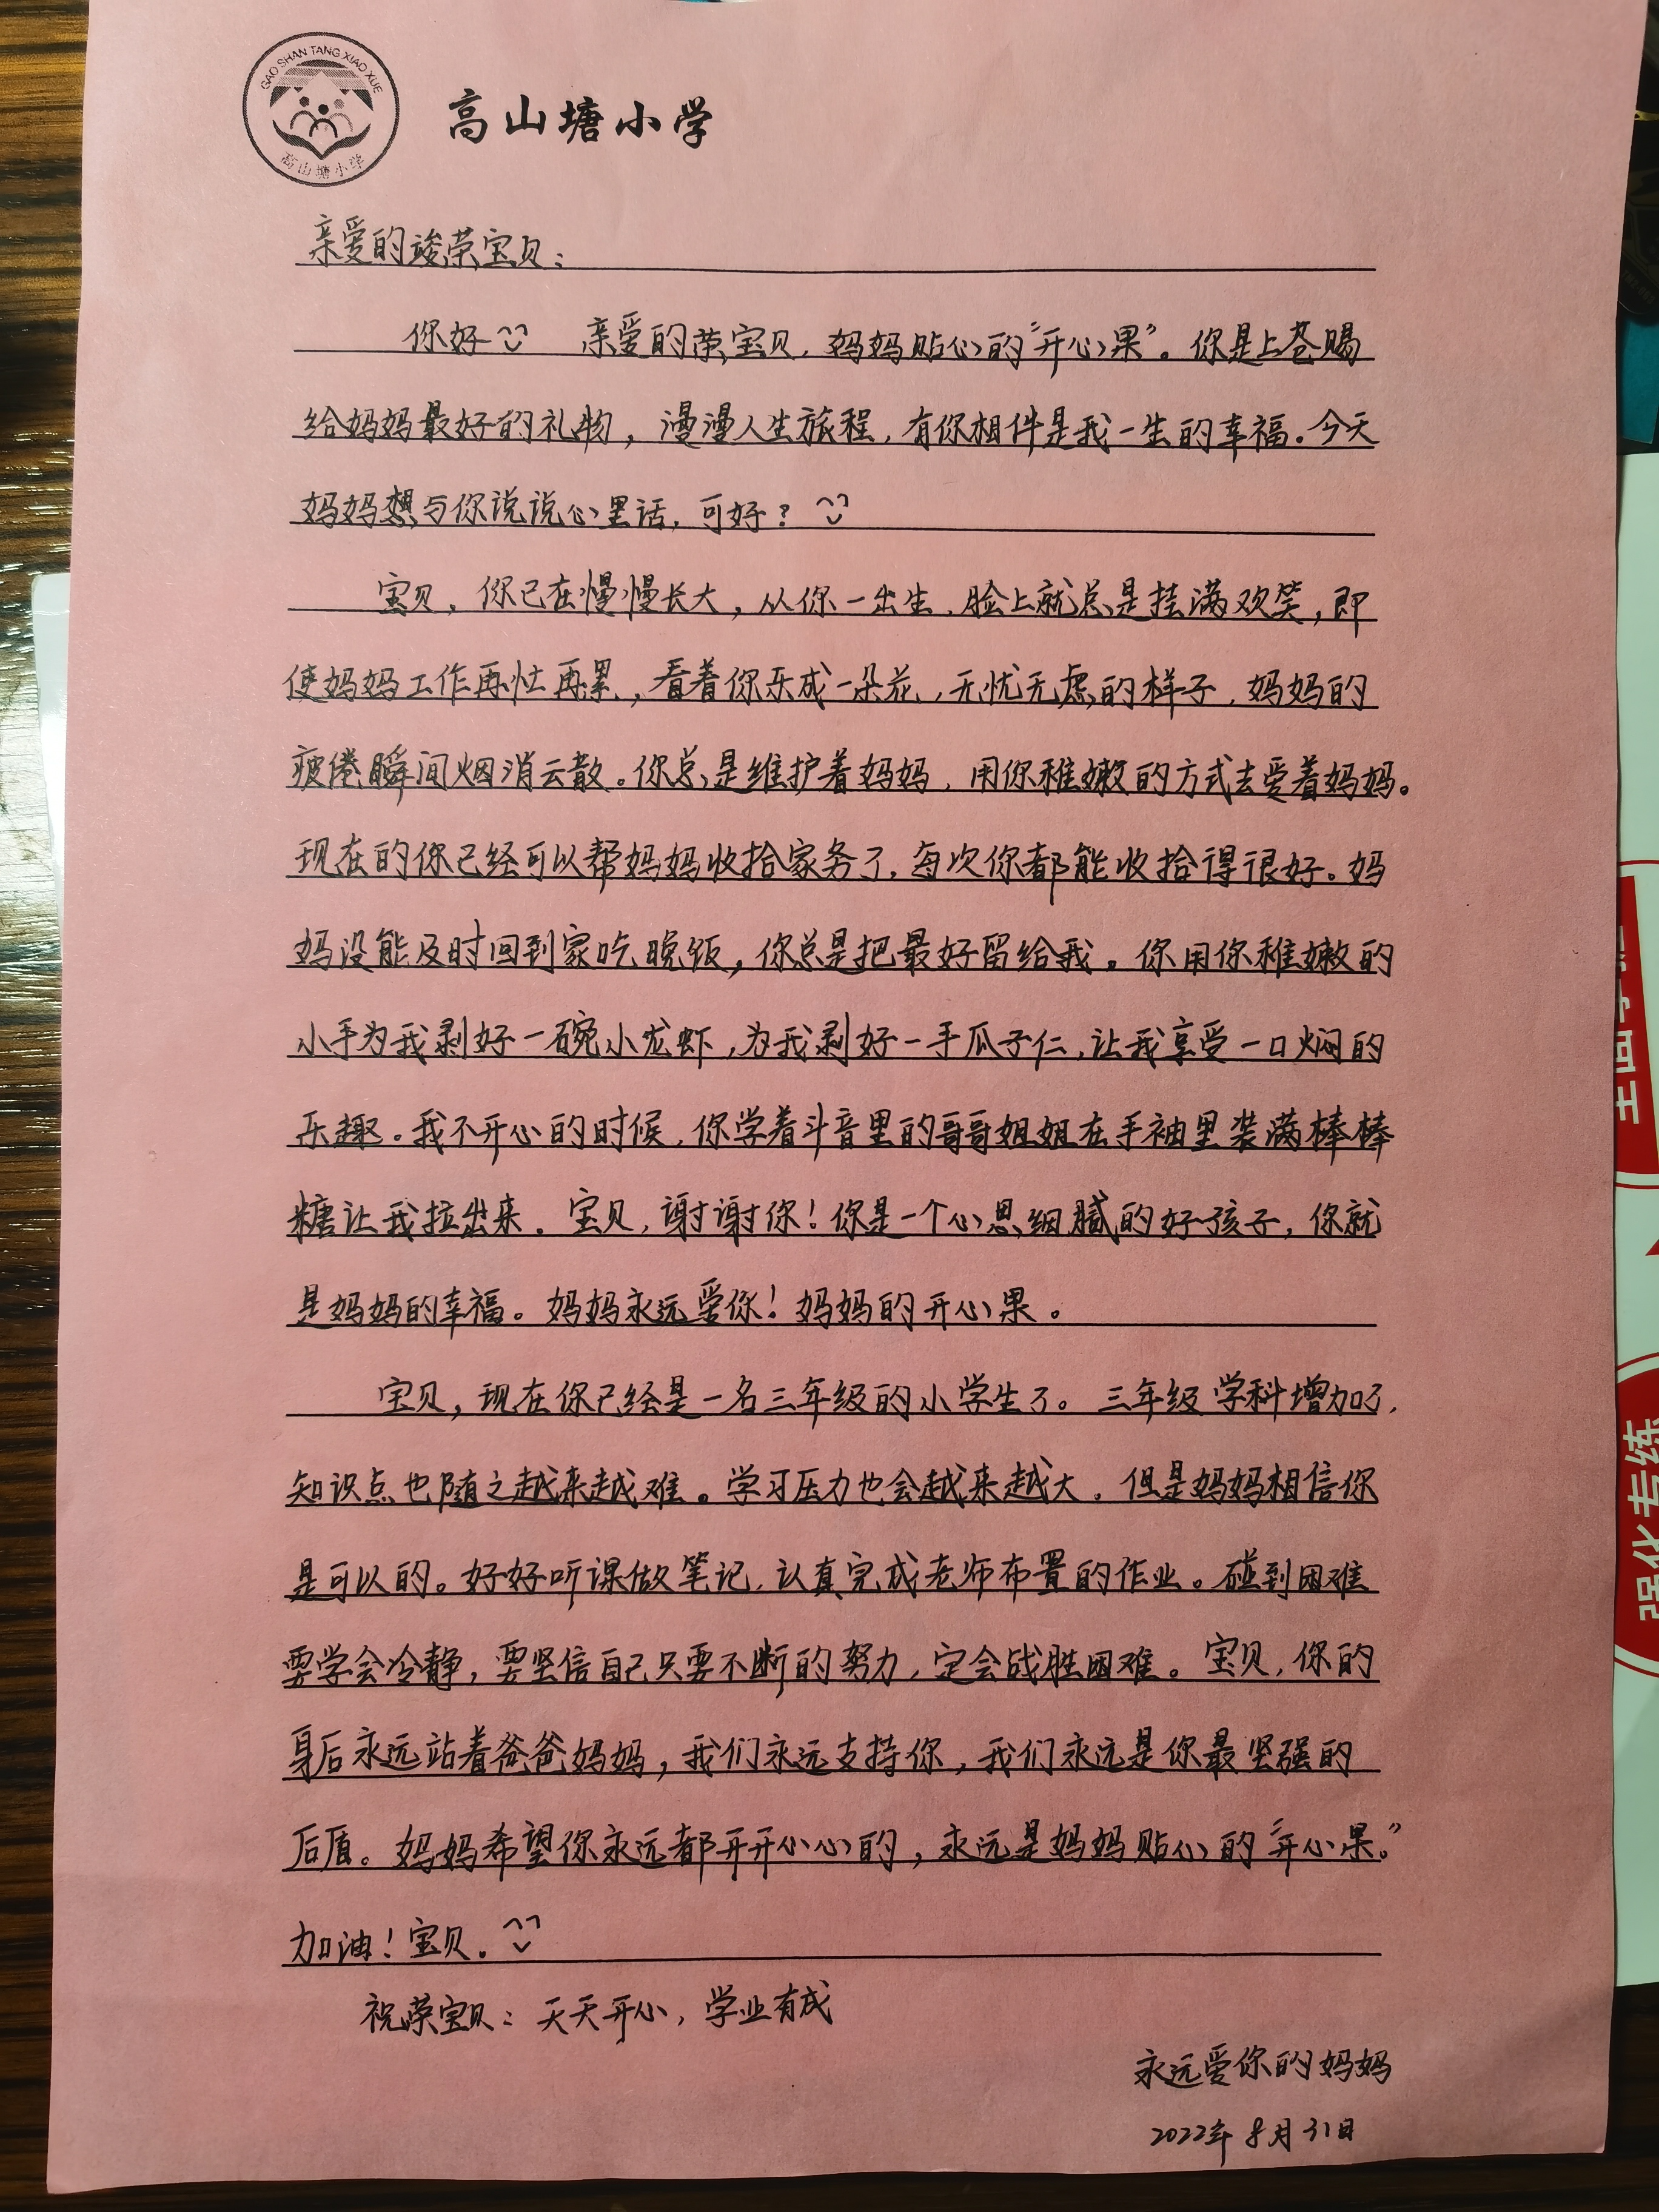 GAO SHAN TANG XIAO XUE
高山塘小学
高山塘小学
亲爱的竣荣宝贝：
你好 亲爱的荣宝贝，妈妈贴心的“开心果”。你是上苍赐
给妈妈最好的礼物，漫漫人生旅程，有你相伴是我一生的幸福。今天
妈妈想与你说说心里话，可好？
宝贝，你已在慢慢长大，从你一出生，脸上就总是挂满欢笑，即
使妈妈工作再忙再累，看着你乐成一朵花，无忧无虑的样子，妈妈的
疲倦瞬间烟消云散。你总是维护着妈妈，用你稚嫩的方式去爱着妈妈。
现在的你已经可以帮妈妈收拾家务了，每次你都能收拾得很好。妈
妈没能及时回到家吃晚饭，你总是把最好留给我。你用你稚嫩的
小手为我剥好一碗小龙虾，为我剥好一手瓜子仁，让我享受一口焖的
乐趣。我不开心的时候，你学着斗音里的哥哥姐姐在手袖里装满棒棒
糖让我拉出来。宝贝，谢谢你！你是一个心思细腻的好孩子，你就
是妈妈的幸福。妈妈永远爱你！妈妈的开心果。
宝贝，现在你已经是一名三年级的小学生了。三年级学科增加了，
知识点也随之越来越难。学习压力也会越来越大，但是妈妈相信你
是可以的。好好听课做笔记，认真完成老师布置的作业。碰到困难
要学会冷静，要坚信自己只要不断的努力，定会战胜困难。宝贝，你的
身后永远站着爸爸妈妈，我们永远支持你，我们永远是你最坚强的
后盾。妈妈希望你永远都开开心心的，永远是妈妈贴心的“开心果。”
加油！宝贝。
祝荣宝贝：天天开心，学业有成
永远爱你的妈妈
2022年8月31日
强化专练